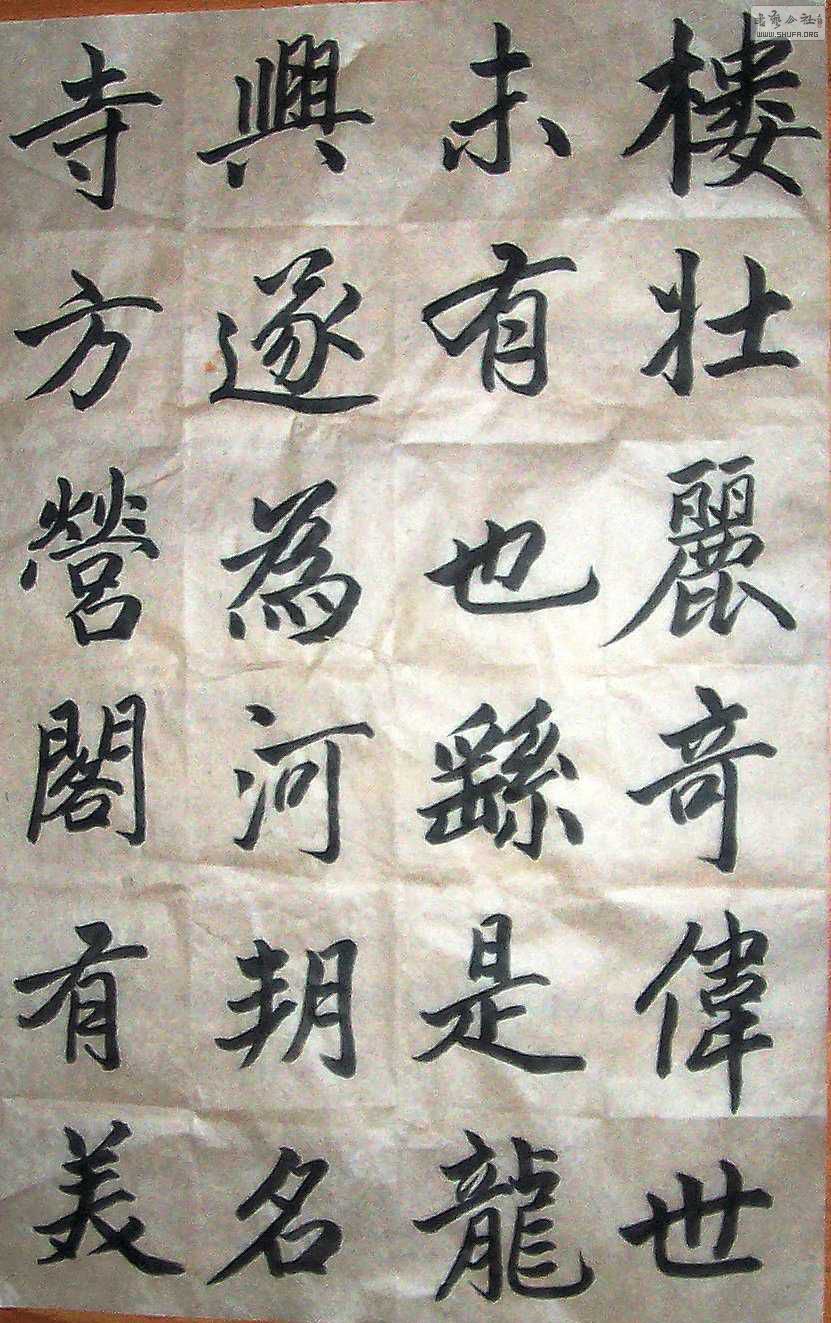 樓壯麗奇偉世
未有也繇是龍
興遂為河朔名
寺方營閣有美
書藝公社
WWW.SHUFA.ORG